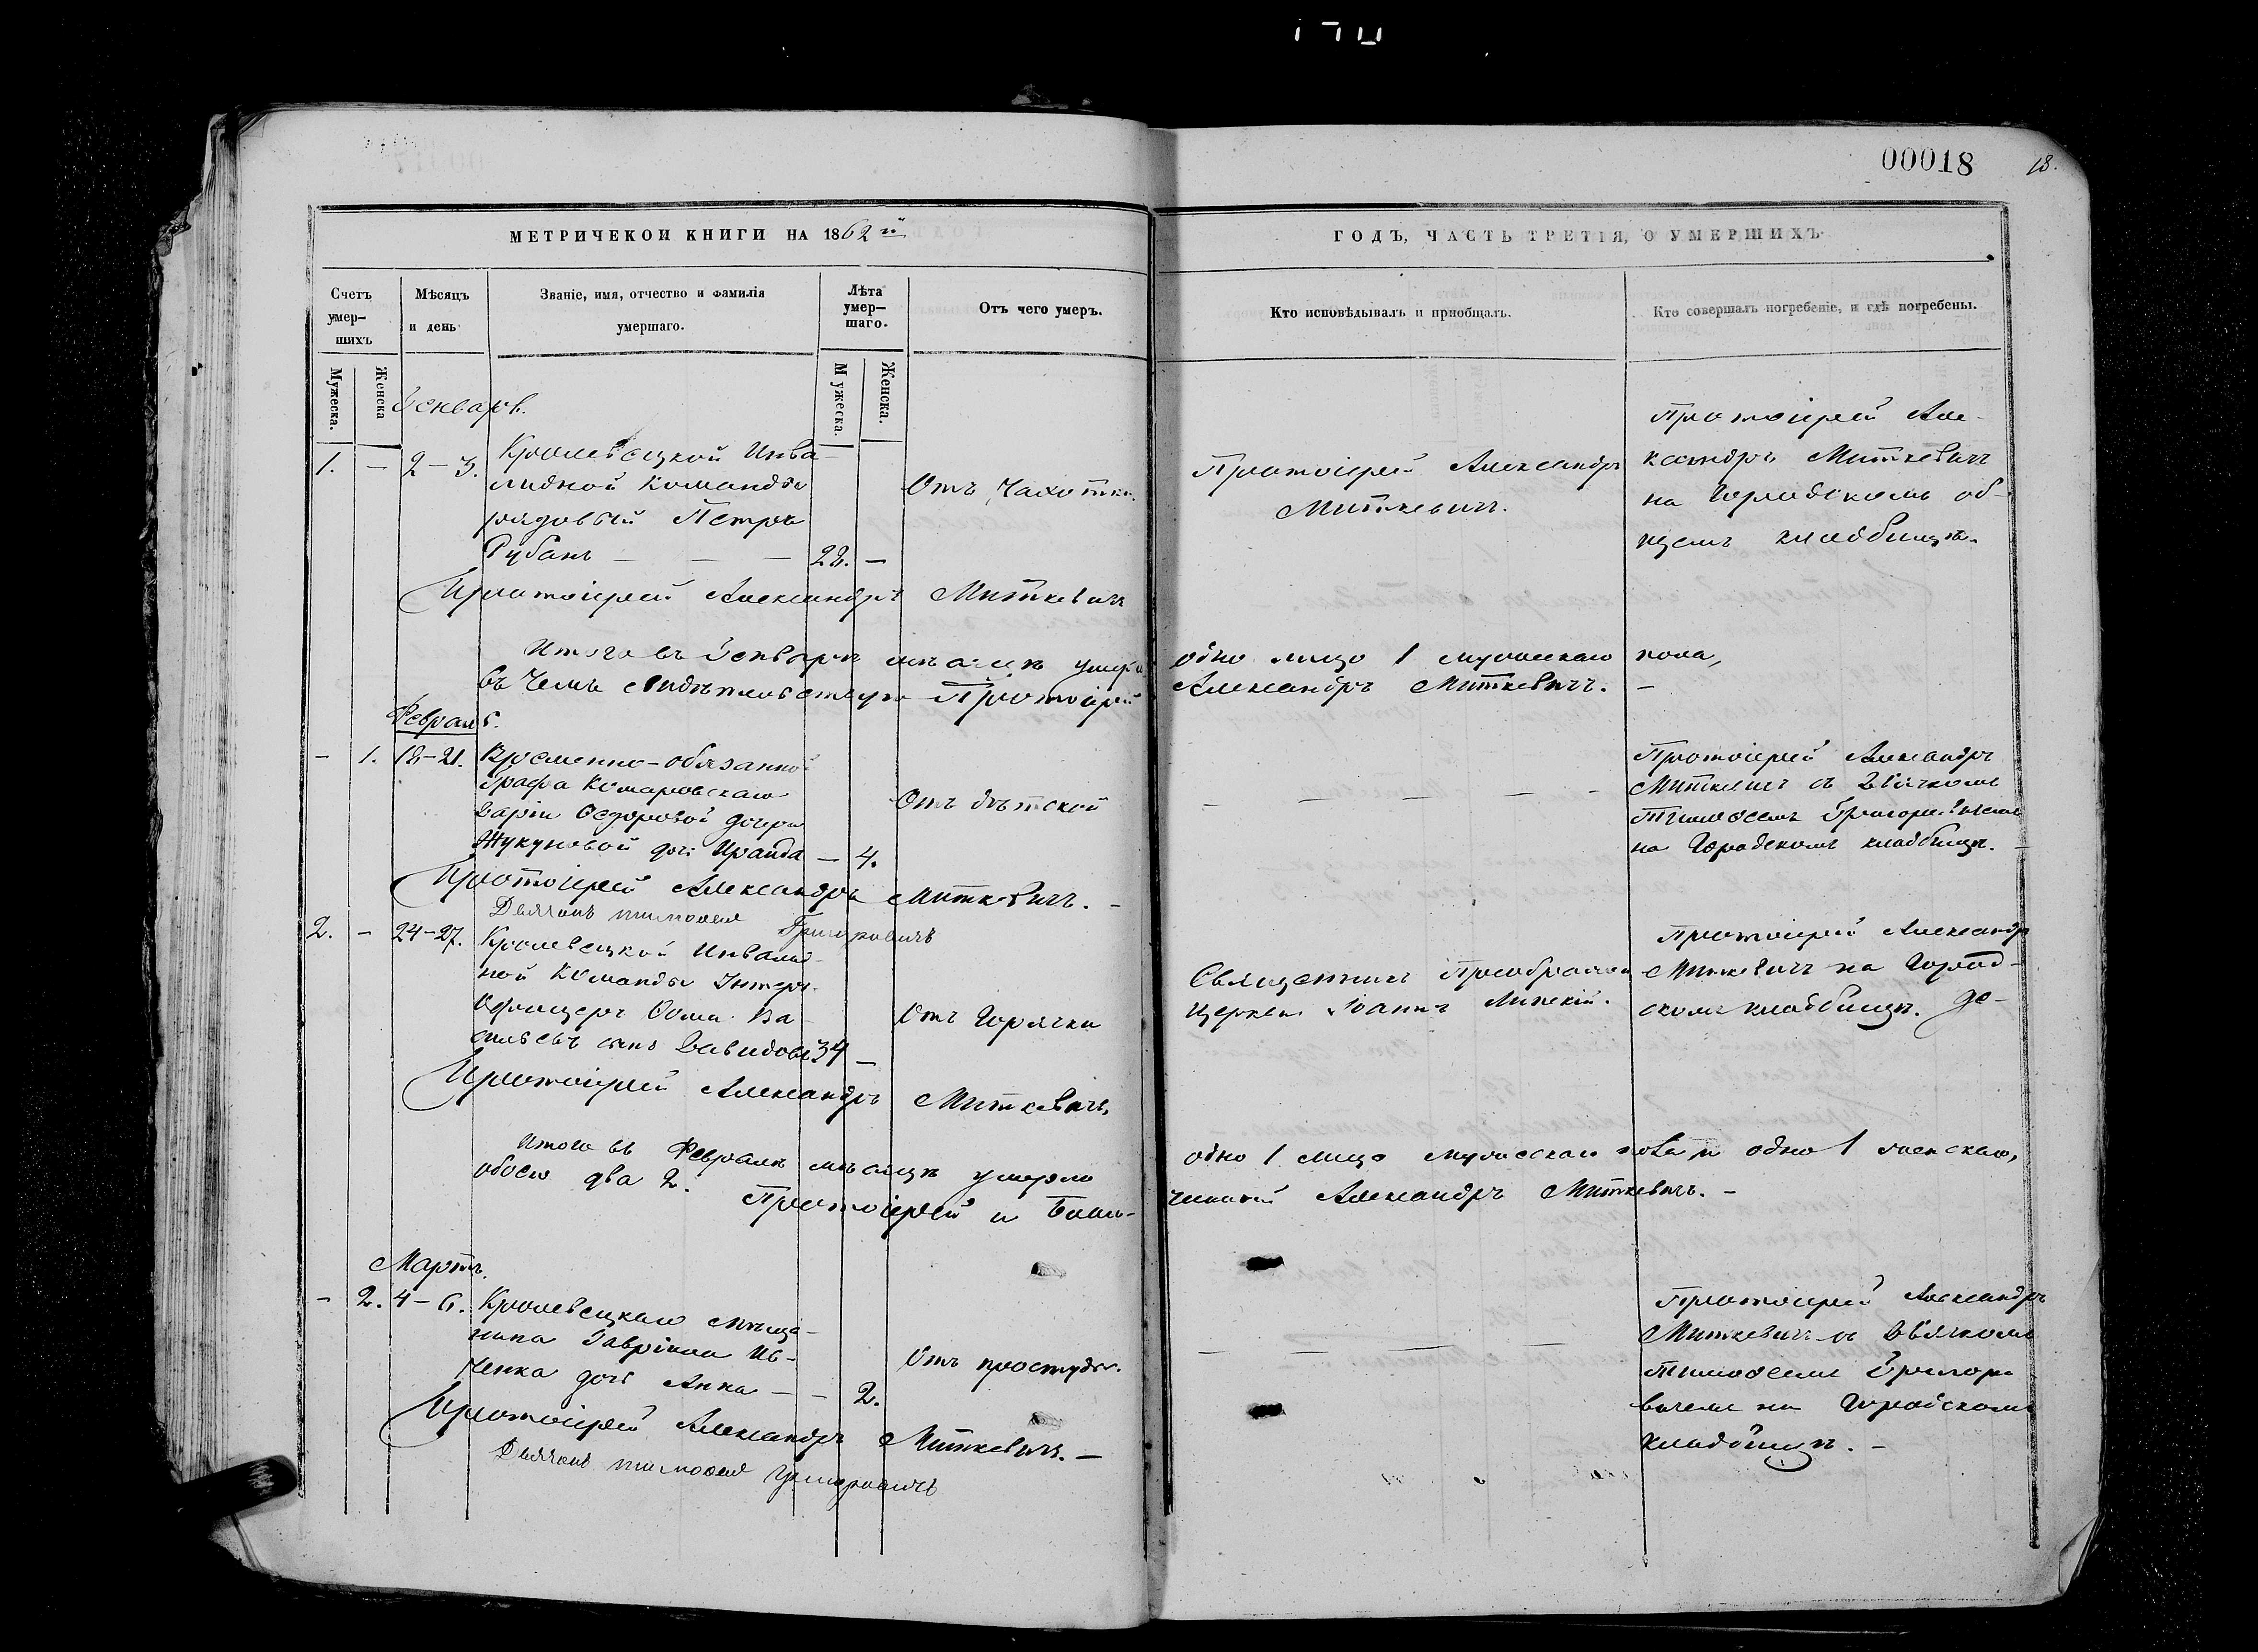 00018 18.
МЕТРИЧЕКОИ КНИГИ НА 1862 й
ГОДЪ, ЧАСТЬ ТРЕТІЯ, О УМЕРШИХЪ
Счетъ умер-шихъ
Мѣсяцъ и день
Званіе, имя, отчество и фамилія
умершаго.
Лѣта умер-шаго.
Отъ чего умеръ.
Кто исповѣдывалъ и пріобщалъ.
Кто совершалъ погребеніе, и гдѣ погребены.
Мужеска.
Женска
Мужеска.
Женска.
Генваръ.
1. – 2–3.
Кролевецкой Инва-
лидной Команды
рядовый Петръ
Рубанъ – – – 28. –
Отъ Чахотки.
Протоіерей Александръ
Миткевичъ.
Протоіерей Але-
ксандръ Миткевичъ
на Городскомъ об-
щемъ кладбищѣ.
Протоіерей Александръ Миткевичъ
Итого въ Генварѣ мѣсяцѣ умерло одно лицо 1 мужескаго пола,
въ чемъ свидѣтельствую Протоіерей Александръ Миткевичъ. –
Февраль.
– 1. 18–21.
Временно-обязанной
Графа Комаровскаго
Даріи Ѳедоровой дочери
Жукуновой дочь Ираида – 4.
Отъ дѣтской
– – – – –
Протоіерей Александръ
Миткевичъ съ Дьячкомъ
Тимоѳеемъ Григоровичемъ
на Городскомъ кладбищѣ. –
Протоіерей Александръ Миткевичъ. –
Дьячокъ Тимоѳей Григоровичъ
2. – 24–27.
Кролевецкой Инвалид-
ной Команды Унтеръ-
Офицеръ Ѳома Ва-
сильевъ сынъ Давидовъ 34 –
Отъ Горячки
Священникъ Преображен.
Церкви Іоаннъ
Протоіерей Александръ
Миткевичъ на Город-
скомъ кладбищѣ.
Протоіерей Александръ Миткевичъ,
Итого въ Февралѣ мѣсяцѣ умерло одно 1 лицо мужескаго пола и одно 1 женскаго,
обоего два 2. Протоіерей и Благо-чинный Александръ Миткевичъ. –
Мартъ.
– 2. 4–6.
Кролевецкаго мѣща-
нина Гавріила Ив-
ченка дочь Анна – – 2.
Отъ простуды.
– – – – –
Протоіерей Александръ
Миткевичъ съ Дьячкомъ
Тимоѳеемъ Григоро-
вичемъ на Городскомъ
кладбищѣ. –
Протоіерей Александръ Миткевичъ. –
Дьячокъ Тимоѳей Григоровичъ